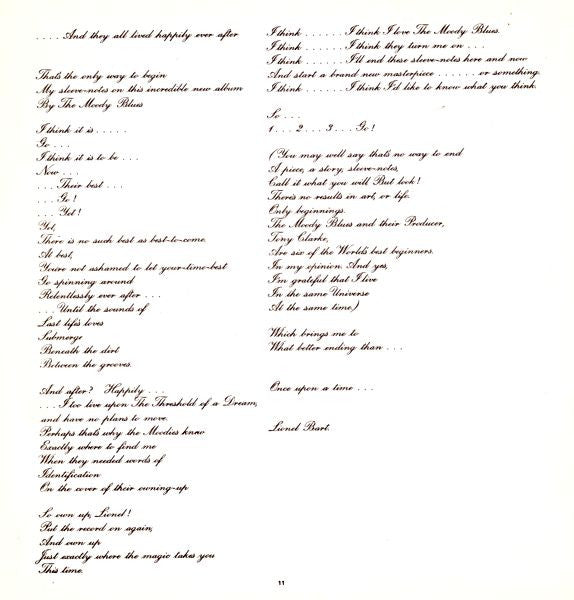 .....And they all lived happily ever after
Thats the only way to begin
My sleeve-notes on this incredible new album
By The Moody Blues
I think it is.....
Go...
I think it is to be...
Now...
...Their best...
...Go!
...Yet!
Yet,
There is no such best as best-to-come.
At best,
You're not ashamed to let your-time-best
Go spinning around
Relentlessly ever after...
...Until the sounds of
Last life's loves
Submerge
Beneath the dirt
Between the grooves.
And after? Happily...
...I too live upon The Threshold of a Dream,
and have no plans to move.
Perhaps that's why the Moodies knew
Exactly where to find me
When they needed words of
Identification
On the cover of their owning-up
So own up, Lionel!
Put the record on again,
And own up
Just exactly where the magic takes you
This time.
I think.......I think I love The Moody Blues.
I think.......I think they turn me on...
I think.......I'll end these sleeve-notes here and now
And start a brand new masterpiece.......or something.
I think.......I think I'd like to know what you think.
So...
1...2...3...Go!
(You may well say thats no way to end
A piece, a story, sleeve-notes,
Call it what you will But look!
There's no results in art, or life.
Only beginnings.
The Moody Blues and their Producer,
Tony Clarke,
Are six of the World's best beginners.
In my opinion. And yes,
I'm grateful that I live
In the same Universe
At the same time.)
Which brings me to
What better ending than...
Once upon a time...
Lionel Bart.
11